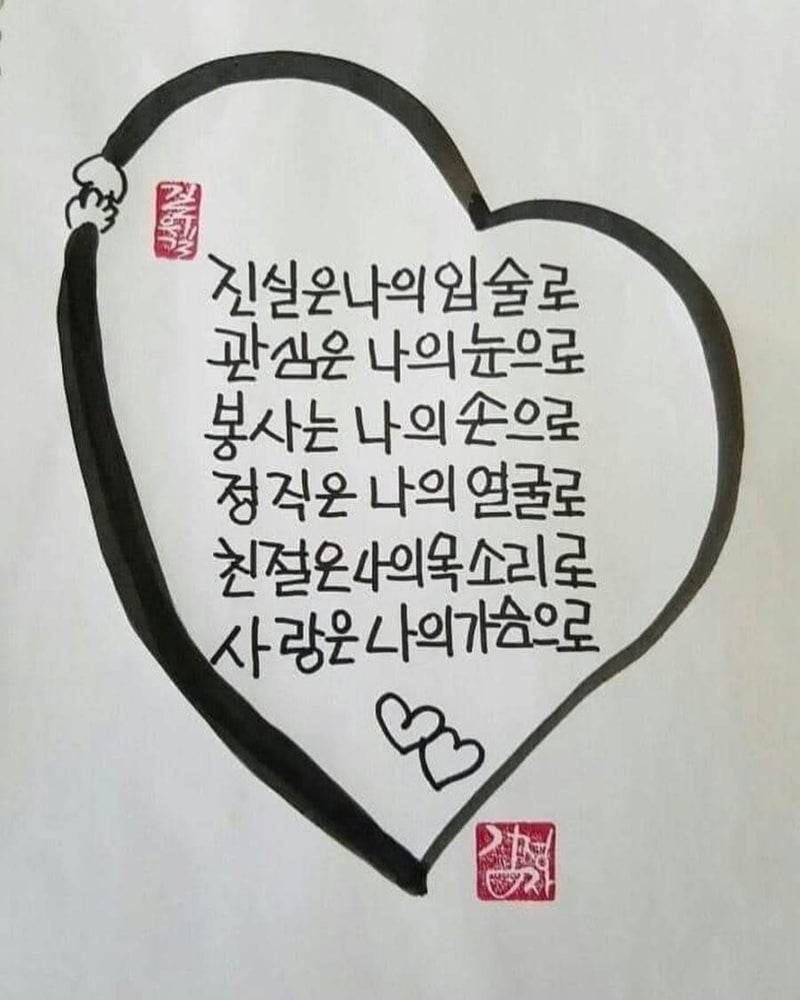 진실은 나의 입술로
관심은 나의 눈으로
봉사는 나의 손으로
정직은 나의 얼굴로
친절은 나의 목소리로
사랑은 나의 가슴으로